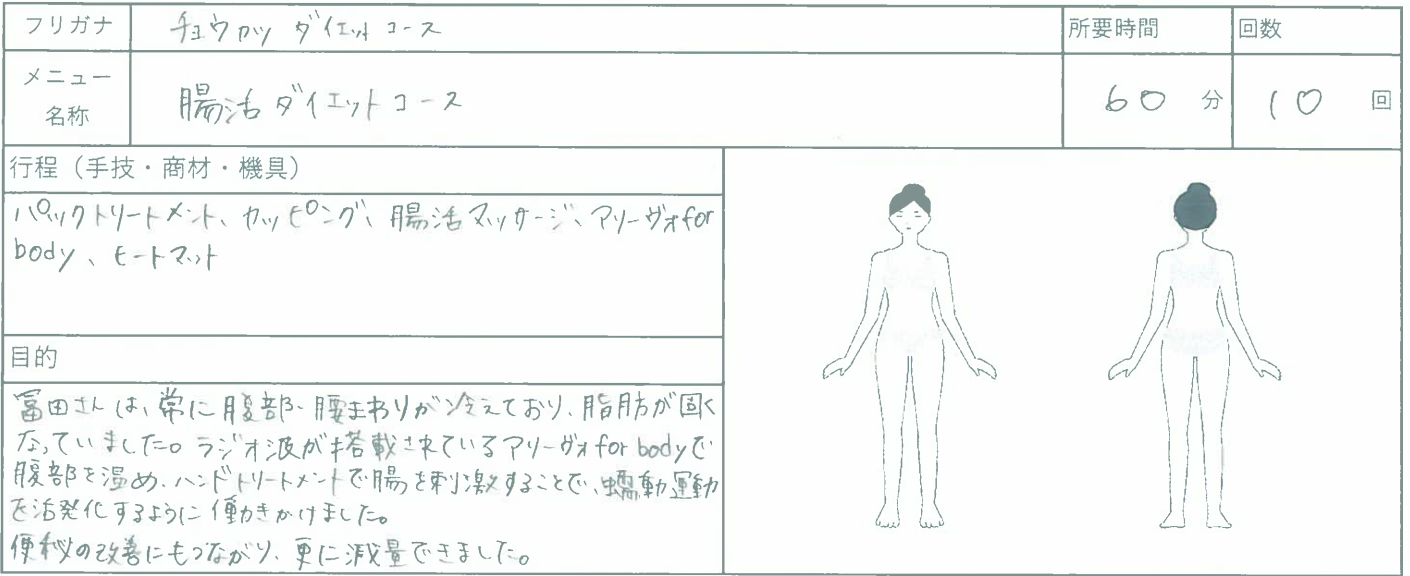 フリガナ
チョウカツ ダイエットコース
所要時間
回数
メニュー
名称
腸活ダイエットコース
60 分
10 回
行程（手技・商材・機具）
パックトリートメント、カッピング、腸活マッサージ、アリーヴォfor
body、ヒートマット
目的
冨田さんは、常に腹部・腰まわりが冷えており、脂肪が固く
なっていました。ラジオ波が搭載されているアリーヴォfor bodyで
腹部を温め、ハンドトリートメントで腸を刺激することで、蠕動運動
を活発化するように働きかけました。
便秘の改善にもつながり、更に減量できました。